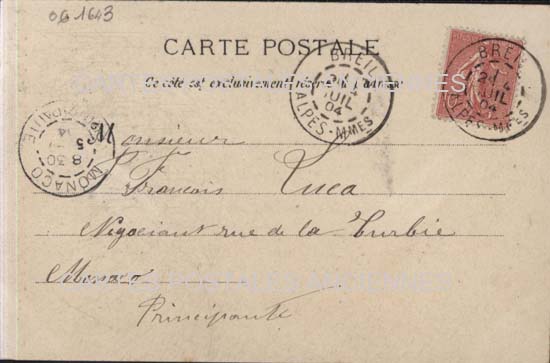 06 1643
CARTE POSTALE
Ce côté est exclusivement réservé à l'adresse
BREIL
21
JUIL
04
ALPES-MMES
BREIL
21
JUIL
04
ALPES-MMES
MONACO
8 30
PRINCIPAUTE
Monsieur
François Luca
Négociant rue de la Turbie
Monaco
Principauté
CARTES POSTALES ANCIENNES